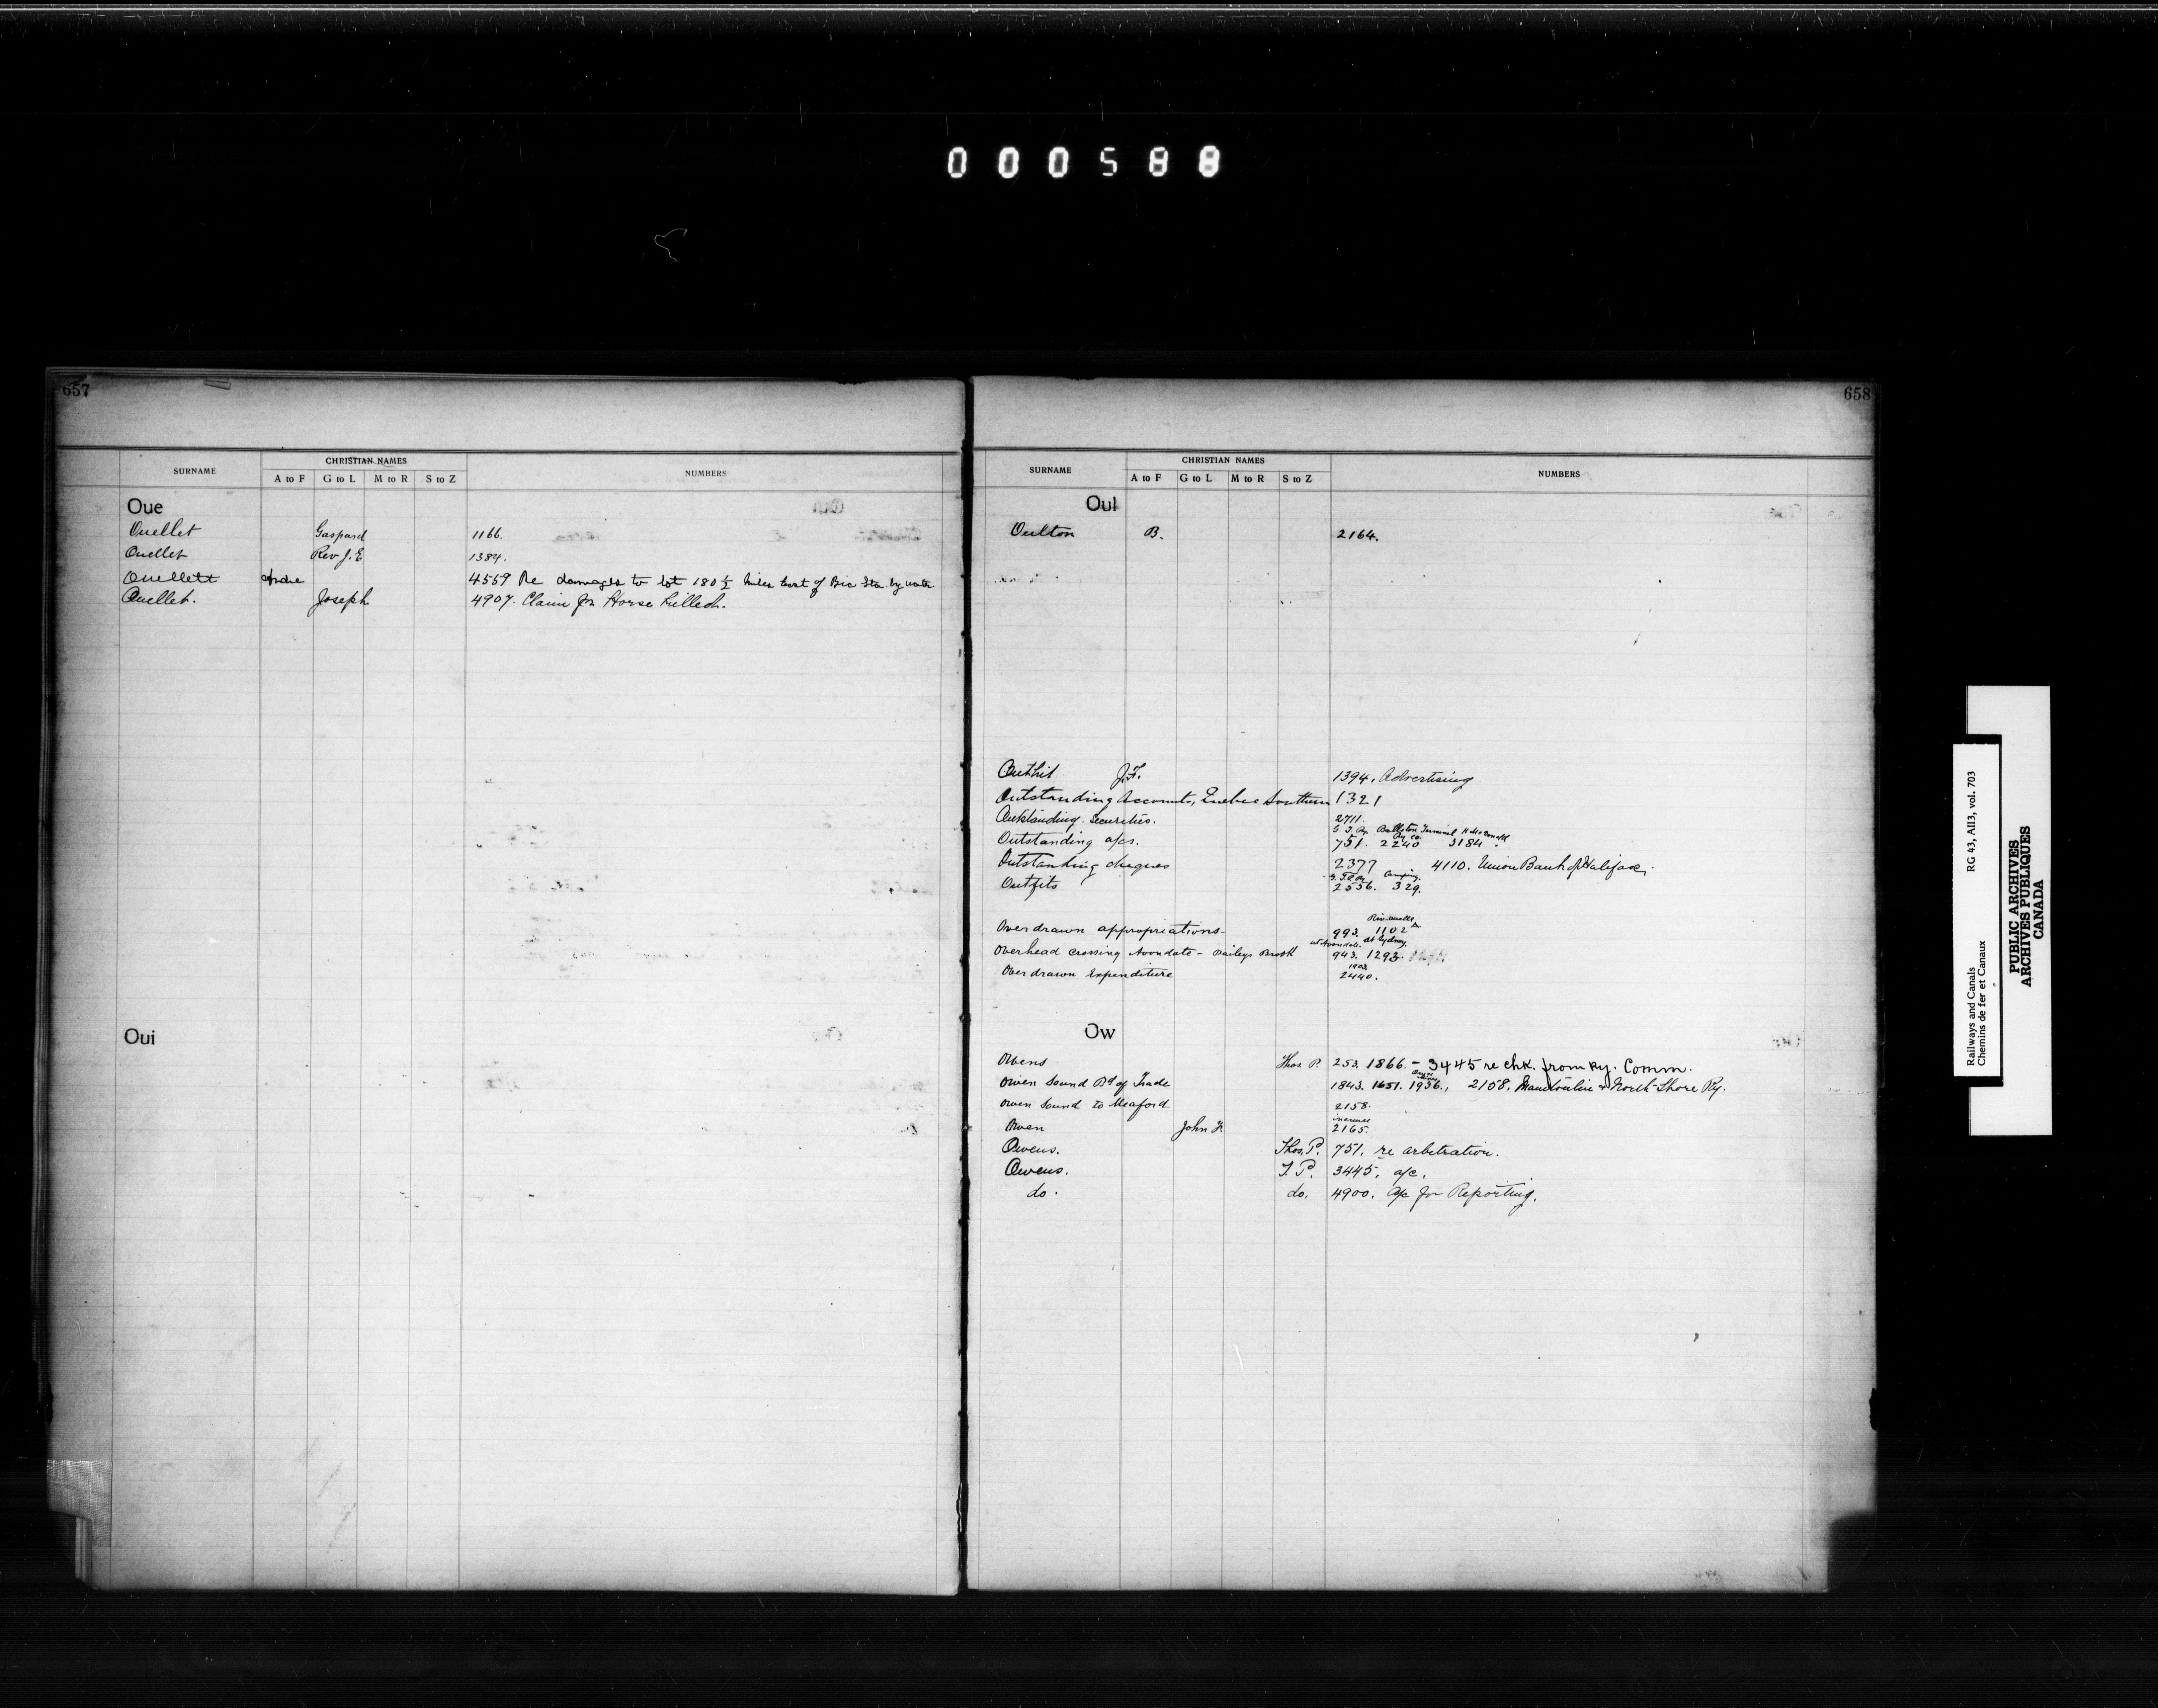 000588
657
SURNAME CHRISTIAN NAMES NUMBERS
A to F G to L M to R S to Z
Oue
Ouellet Gaspard 1166.
Ouellet Rev J. E 1384.
Ouellett Andre 4559 Re damages to lot 180 ½ miles East of Bic Sta. by water
Ouellet. Joseph 4907. Claim for Horse killed.
Oui
658
SURNAME CHRISTIAN NAMES NUMBERS
A to F G to L M to R S to Z
Oul
Oulton B. 2164.
Outhit J.F. 1394. Advertising
Outstanding Accounts, Quebec Southern 1321
Outstanding Securities. 2711.
G. T. Ry. Ballston Terminal Ry Co. H McDonald
Outstanding a/cs. 751. 2240 3184.
Outstanding cheques 2377 4110. Union Bank of Halifax.
Camping.
Outfits 2556. 329.
Riv. Ouelle
Overdrawn appropriations 993. 1102
at Avondale. at Sydney.
Overhead Crossing Avondale - Baileys Brook 943. 1293.
1903
Overdrawn Expenditure 2440.
Ow
Owens Thos P. 253. 1866. - 3445 re chk. from Ry. Comm.
Owen Sound Bd of Trade 1843. 1651. 1956., 2158. Manitoulin & North Shore Ry.
Owen Sound to Meaford 2158.
increase
Owen John F. 2165.
Owens. Thos. P. 751. re arbitration.
Owens. T. P. 3445. a/c.
do. do. 4900. a/c for Reporting.
Railways and Canals RG 43, AII3, vol. 703
Chemins de fer et Canaux
PUBLIC ARCHIVES
ARCHIVES PUBLIQUES
CANADA